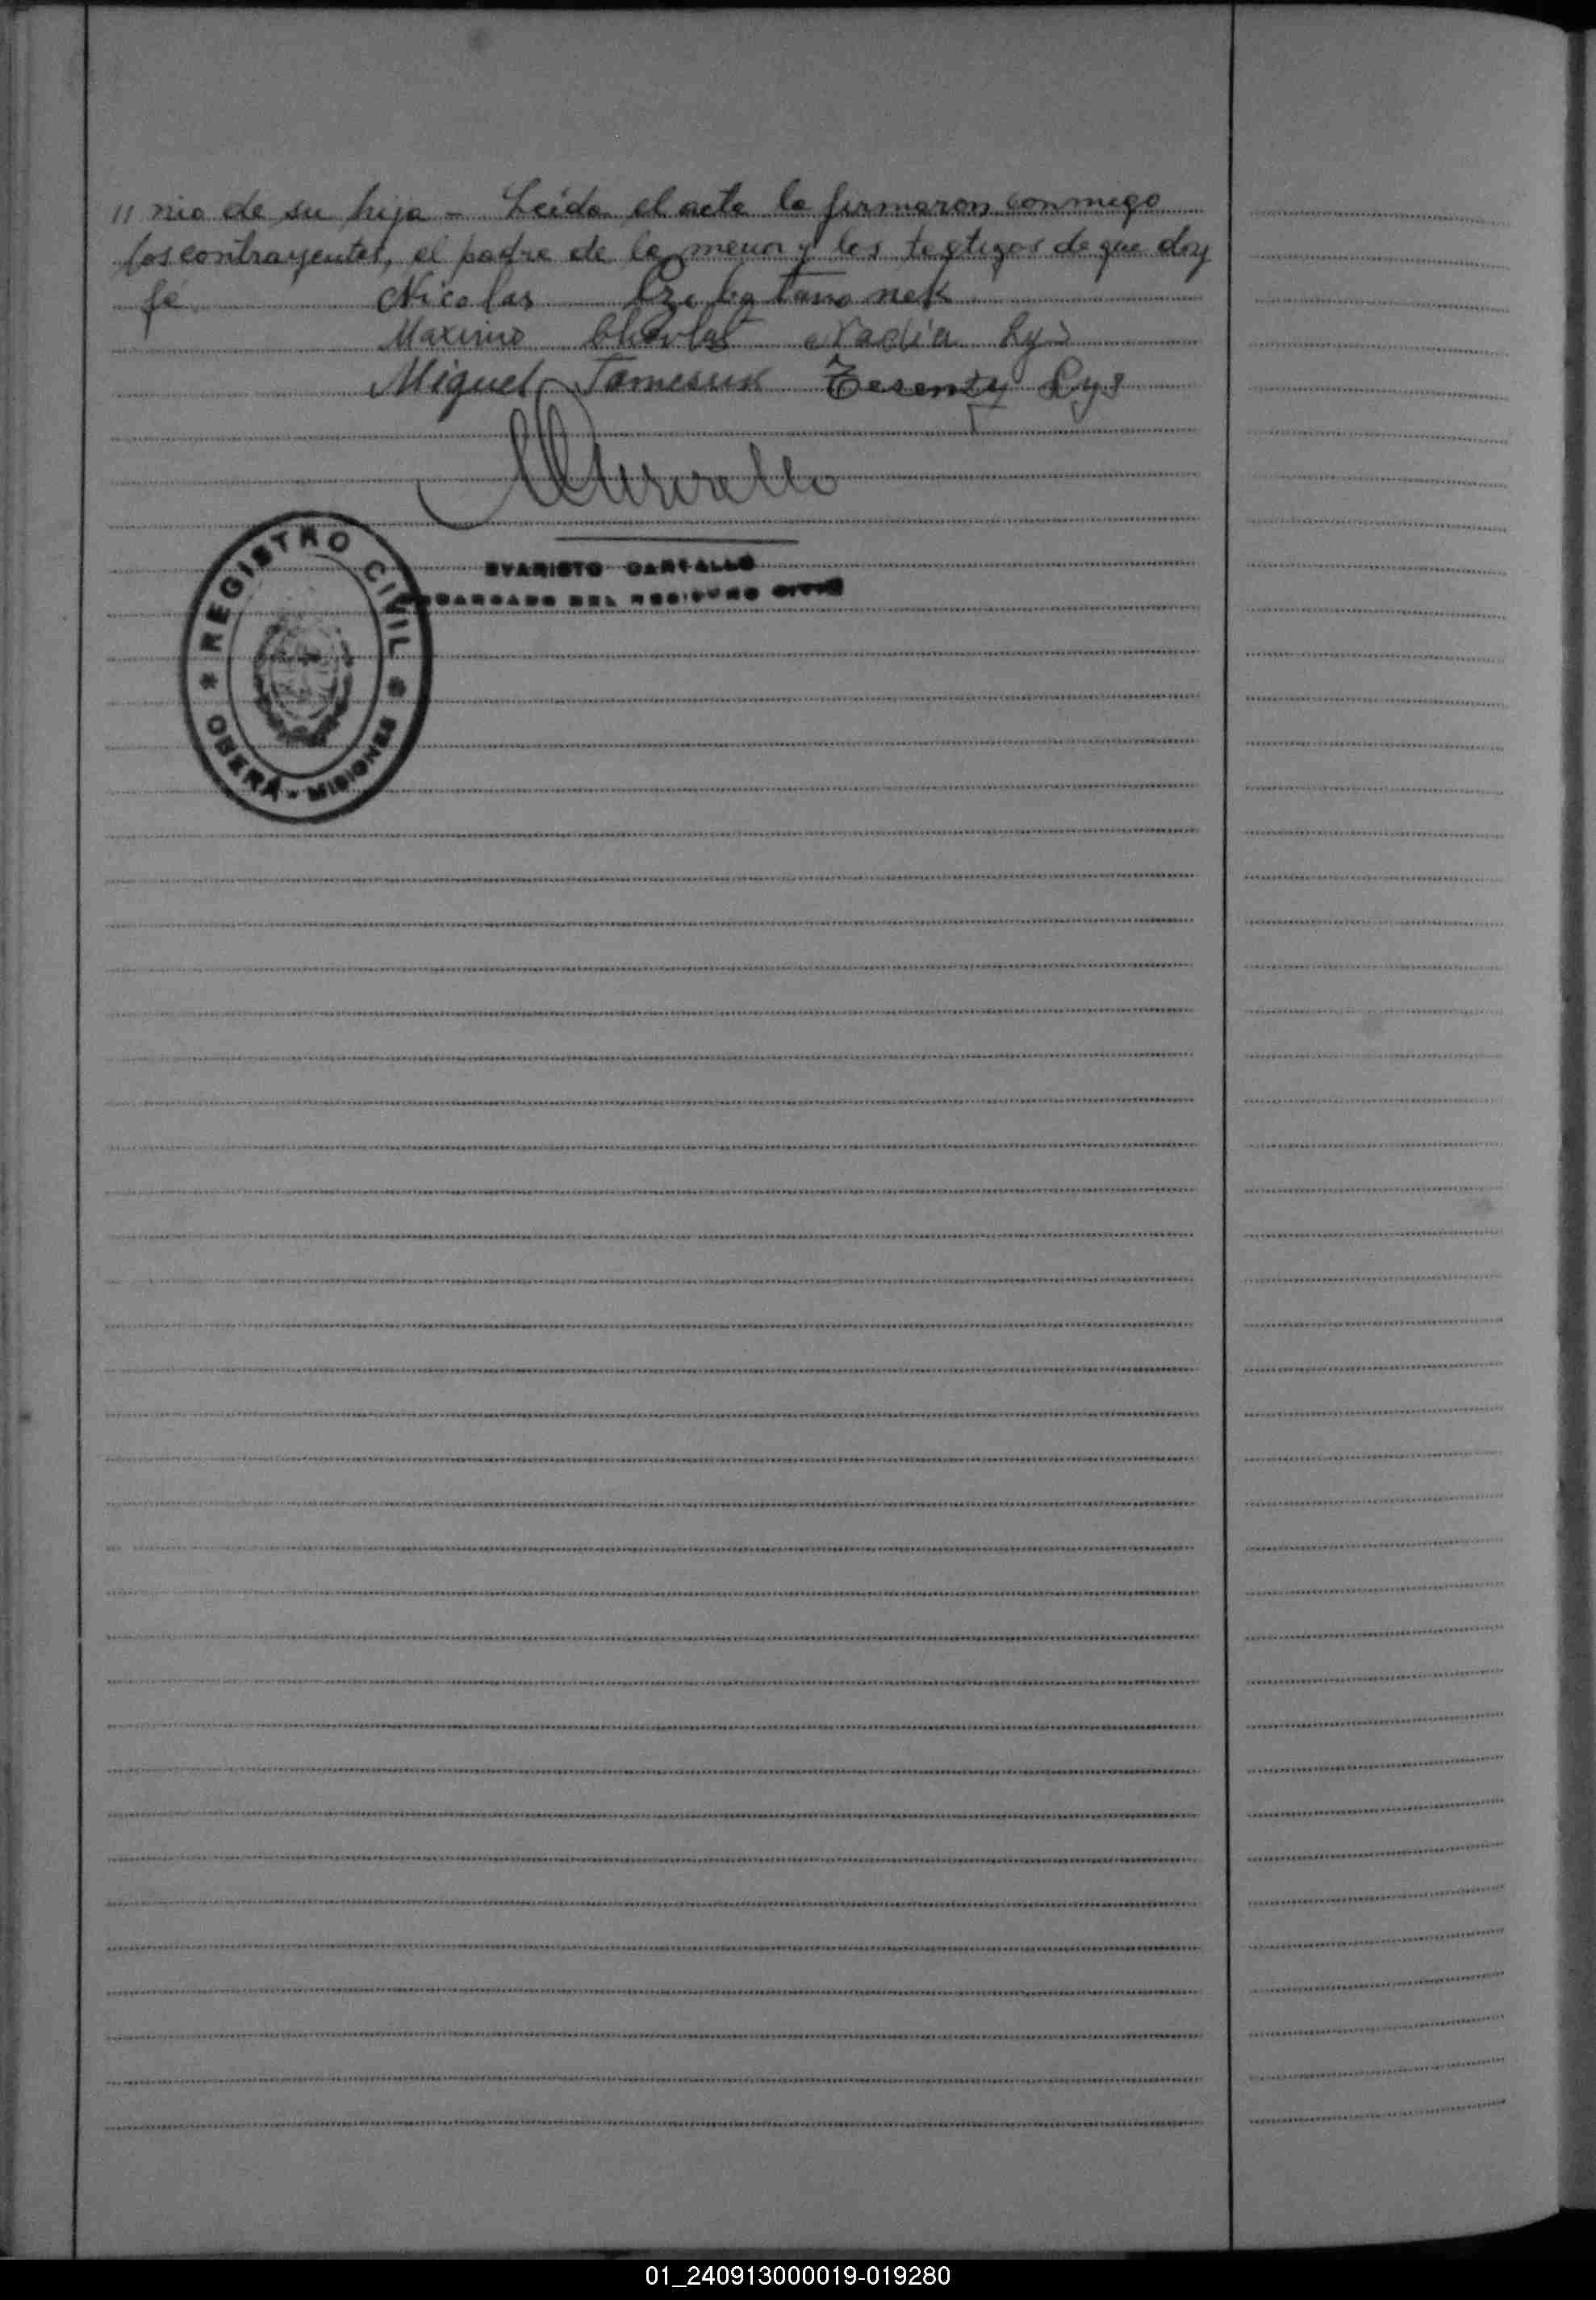 " nio de su hija - Leida el acta la firmaron conmigo
los contrayentes, el padre de la menor y los testigos de que doy
fé Nicolas
Maximo Nadia Lys
Miguel Terenty Lys
EVARISTO CARFALLO
DEL REGISTRO CIVIL
* REGISTRO CIVIL *
OBERÁ - MISIONES
01_240913000019-019280